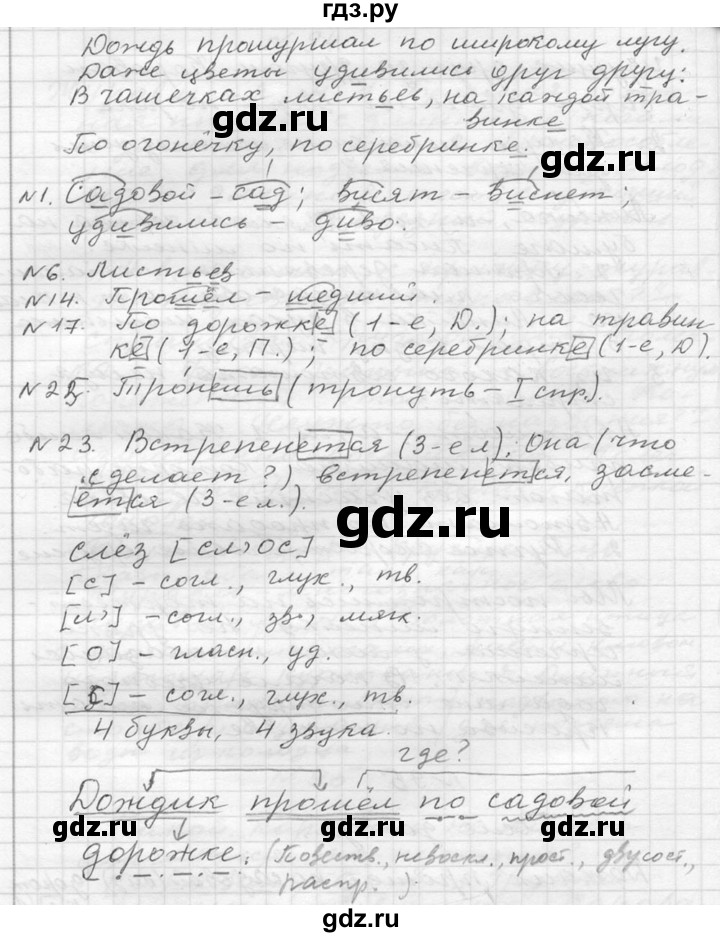 гдз.ру
Дождь прошуршал по широкому лугу.
Даже цветы удивились друг другу:
В чашечках листьев, на каждой тра-
винке
По огонёчку, по серебринке.
gdz.ru
gdz.ru
№1. Садовой – сад; висят – виснет;
удивились – диво.
№6. Листьев
№14. Прошёл – шедший.
№17. По дорожке (1-е, Д.); на травин-
ке (1-е, П.); по серебринке (1-е, Д).
№22. Тронешь (тронуть – I спр.).
№23. Встрепенется (3-е л), Она (что
сделает?) встрепенется, засме-
ётся (3-е л.).
gdz.ru
gdz.ru
слёз [сл’ос]
[с] – согл., глух., тв.
[л’] – согл., зв., мягк.
[о] – гласн., уд.
[с] – согл., глух., тв.
4 буквы, 4 звука.
где?
Дождик прошёл по садовой
дорожке. (Повеств., невоскл., прост., двусост.,
распр.)
gdz.ru
gdz.ru
gdz.ru
gdz.ru